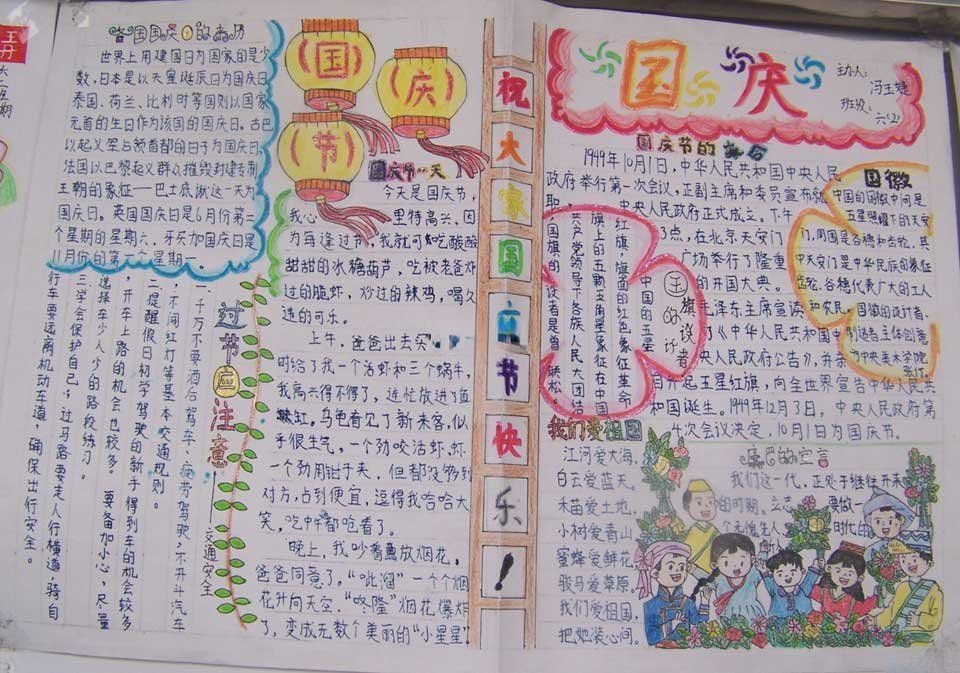 各国国庆日的来历
世界上用建国日为国家的是少
数,日本是以天皇诞辰日为国庆日
泰国、荷兰、比利时等国则以国家
元首的生日作为该国的国庆日。古巴
以起义军占领首都的日子为国庆日
法国以巴黎起义群众摧毁封建制
王朝的象征——巴士底狱这一天为
国庆日。英国国庆日是6月份第二
个星期的星期六、牙买加国庆日是
11月份的第一个星期一。
过节应注意
交通安全
一千万不要洒后驾车、疲劳驾驶,不开斗汽车
,不闯红灯等基本交通规则
二提醒假日初学驾驶的新手得到车的机会较多
,开车上路的机会也较多。要备加小心,尽量
选择车少人少的路段练习。
三学会保护自己,过马路要走人行横道,骑自
行车要远离机动车道,确保出行安全。
国
庆
节
国庆节一天
今天是国庆节,
我心里特高兴、因
为每逢过节,我就可以吃酸酸
甜甜的冰糖葫芦,吃被老爸炸
过的脆虾,炒过的辣鸡,喝久
违的可乐。
上午,爸爸出去买
时给了我一个活虾和三个蜗牛,
我高兴得不得了,连忙放进了鱼
缸。乌龟看见了新来客,似
乎很生气,一个劲咬活虾,虾
一个劲用钳子夹,但都没够到
对方,占到便宜,逗得我哈哈大
笑,吃中午都呛着了。
晚上,我吵着要放烟花,
爸爸同意了。一个个烟
花升向天空。"咚隆"烟花爆炸
了,变成无数个美丽的"小星星"
祝大家国立节快乐!
国庆
主办人:冯玉婕
班级:六(2)
国庆节的
1949年10月1日,中华人民共和国中央人民
政府举行第一次会议,正副主席和委员宣布就
职,中央人民政府正式成立。下午
3点,在北京天安门
广场举行了隆重
的开国大典。
毛泽东主席宣读
了《中华人民共和国中
央人民政府公告》,并亲
自升起五星红旗,向全世界宣告中华人民共
和国诞生。1949年12月3日,中央人民政府第
4次会议决定,10月1日为国庆节。
国旗的设计者
中国的五星
红旗,旗面的红色象征革命
旗上的五颗五角星象征在中国
共产党领导下各族人民大团结
国旗的设计者是曾联松。
国徽
中国的国徽中间是
五星照耀下的天安
门,周围是谷穗和齿轮,其
中天安门是中华民族的象征
齿轮、谷穗代表广大的工人
和农民。国徽的设计者、
创造者主体创意
为中央美术学院
张仃。
我们爱祖国
江河爱大海,
白云爱蓝天。
禾苗爱土地,
小树爱青山
蜜蜂爱鲜花
骏马爱草原,
我们爱祖国,
把她装心间。
的宣言
我们这一代,正处于继往开来
的时期。立志要做一
个无愧时代的